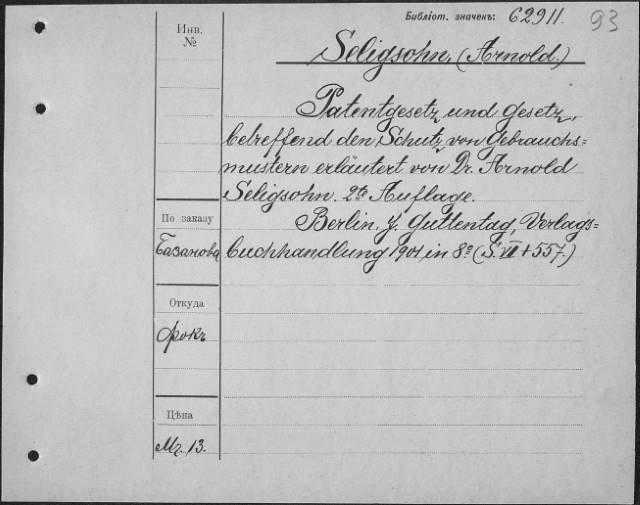 Библіот. значенъ: 62911. 93
Инв.
№
Seligsohn, (Arnold.)
Patentgesetz und Gesetz,
betreffend den Schutz von Gebrauchs=
mustern erläutert von Dr. Arnold
Seligsohn. 2te Auflage.
По заказу
Базанова
Berlin, J. Guttentag, Verlags=
buchhandlung 1901 in 8º (S. VII + 557.)
Откуда
Фокъ
Цѣна
Mr. 13.